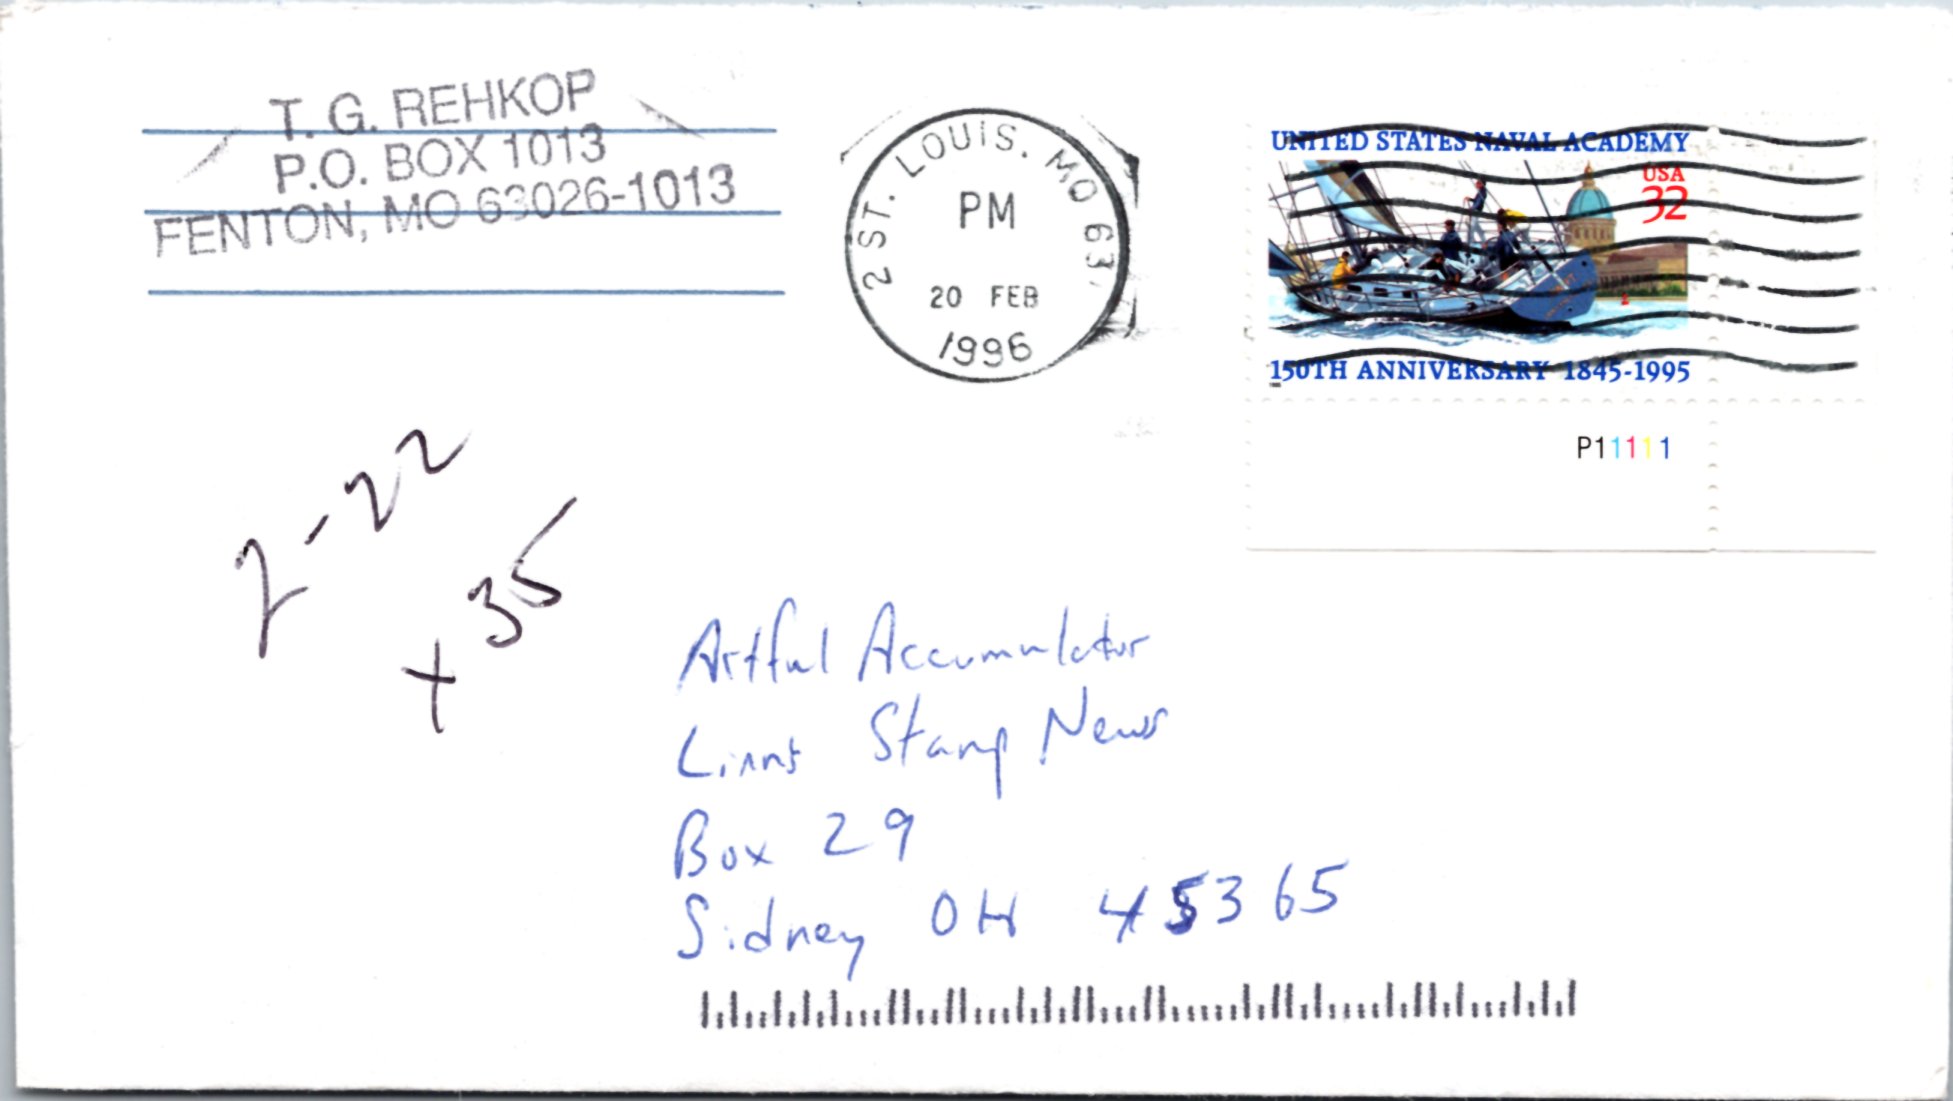 T. G. REHKOP
P.O. BOX 1013
FENTON, MO 63026-1013
2 ST. LOUIS. MO 63
PM
20 FEB
1996
UNITED STATES NAVAL ACADEMY
USA
32
150TH ANNIVERSARY 1845-1995
P11111
2-22
+35
Artful Accumulator
Linns Stamp News
Box 29
Sidney OH 45365